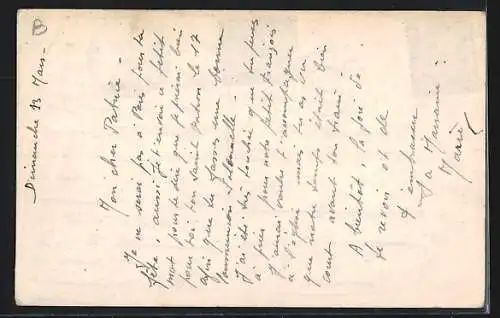 Dimanche 13 Mars -
Mon cher Patrice -
Je ne serai pas à Paris pour ta
fête, aussi je t'envoie ce petit
mot pour te dire que je prierai bien
pour toi ton Saint Patron le 17
afin que tu fasses une bonne
Communion Solennelle -
J'ai été très touchée que tu pries
à pour notre petit François
J'aurais voulu t'accompagner
à l'église mais tu as vu
que notre temps était bien
court avant ton train -
A bientôt, la joie de
te revoir et de
t'embrasser
Ta Marraine
Marie